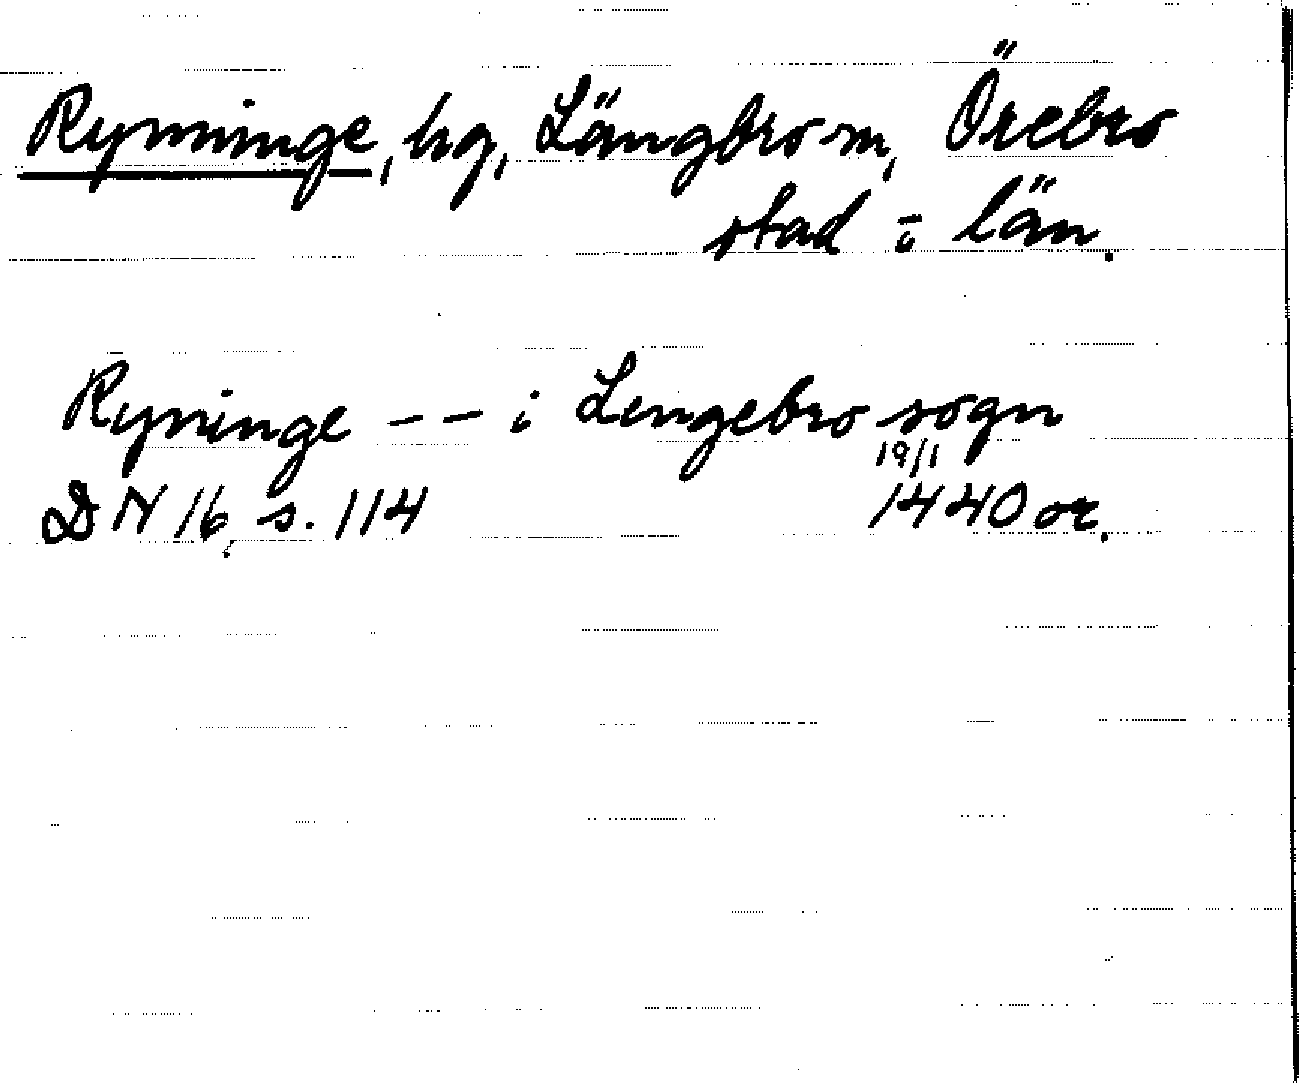 Rynninge, hg, Längbro sn, Örebro
stad i län.
Ryninge -- i Lengebro sogn
19/1
DN 16, s. 114 1440 or.